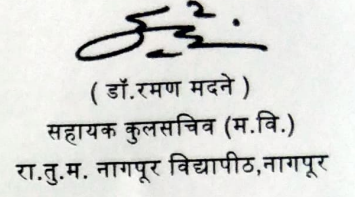 ( डॉ.रमण मदने )
सहायक कुलसचिव (म.वि.)
रा.तु.म. नागपूर विद्यापीठ,नागपूर